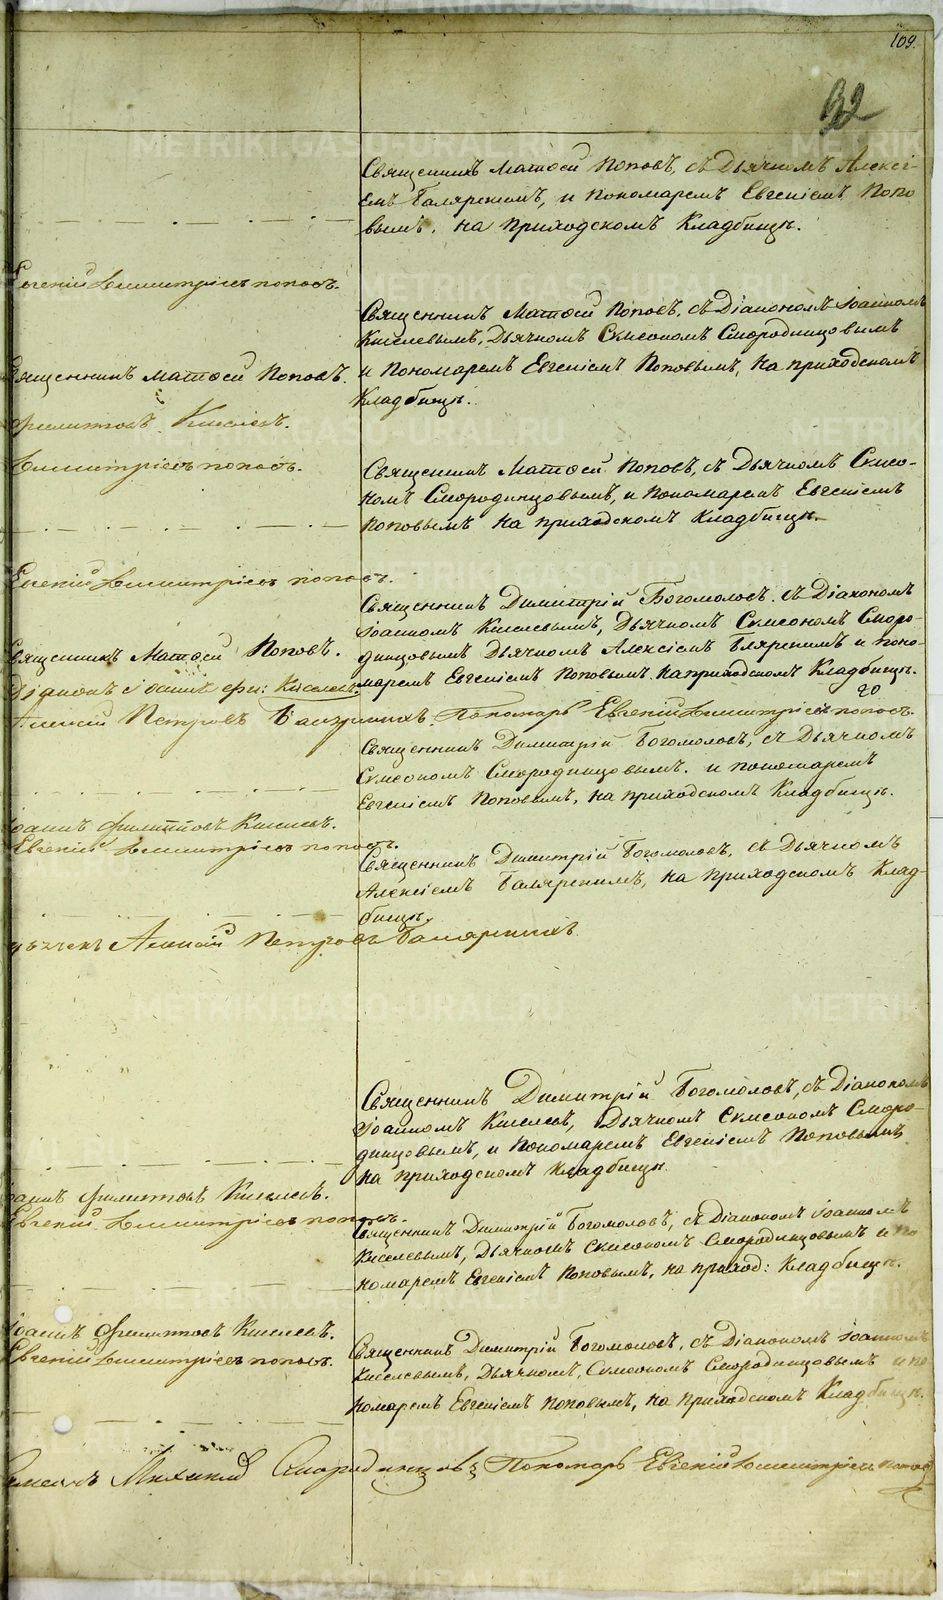 109.
32
Священникъ Матѳей Поповъ, съ Дьячкомъ Алексі-
емъ Баляркинымъ, и Пономаремъ Евгеніемъ Попо
вымъ, на приходскомъ Кладбищѣ.
Евгеній Димитріевъ Поповъ.
Священникъ Матѳей Поповъ, съ Діакономъ Іоанномъ
Киселевымъ, Дьячкомъ Симеономъ Смородинцовымъ
Священникъ Матѳей Поповъ.
и Пономаремъ Евгеніемъ Поповымъ, на приходскомъ
Кладбищѣ.
Филиповъ Киселевъ.
Димитріевъ Поповъ.
Священникъ Матѳей Поповъ, съ Дьячкомъ Симео-
номъ Смородинцовымъ, и Пономаремъ Евгеніемъ
Поповымъ на приходскомъ Кладбищѣ.
Евгеній Димитріевъ Поповъ.
Священникъ Димитрій Богомоловъ. съ Діакономъ
Іоанномъ Киселевымъ, Дьячкомъ Симеономъ Сморо-
Священникъ Матѳей Поповъ.
динцовымъ Дьячкомъ Алексіемъ Бляркинымъ и Поно-
маремъ Евгеніемъ Поповымъ. на приходскомъ Кладбищѣ.
Діаконъ Іоаннъ Фи: Киселевъ
Алексѣй Петровъ Баляркинъ Пономарь Евгеній Димитріевъ Поповъ.
Священникъ Димитрій Богомоловъ, съ Дьячкомъ
Симеономъ Смородинцовымъ. и Пономаремъ
Евгеніемъ Поповымъ, на приходскомъ Кладбищѣ.
Іоаннъ Филиповъ Киселевъ.
Евгеній Димитріевъ Поповъ.
Священникъ Димитрій Богомоловъ, съ Дьячкомъ
Алексіемъ Баляркинымъ, на приходскомъ Клад-
бищѣ.
Дьячекъ Алексѣй Петровъ Баляркинъ
Священникъ Димитрій Богомоловъ, съ Діакономъ
Іоанномъ Киселевъ, Дьячкомъ Симеономъ Сморо-
динцовымъ, и Пономаремъ Евгеніемъ Поповымъ
на приходскомъ Кладбищѣ.
Іоаннъ Филиповъ Киселевъ.
Евгеній Димитріевъ Поповъ.
Священникъ Димитрій Богомоловъ, съ Діакономъ Іоанномъ
Киселевымъ, Дьячкомъ Симеономъ Смородинцовымъ и По
номаремъ Евгеніемъ Поповымъ, на приход: Кладбищѣ.
Іоаннъ Филиповъ Киселевъ.
Евгеній Димитріевъ Поповъ.
Священникъ Димитрій Богомоловъ, съ Діакономъ Іоанномъ
Киселевымъ, Дьячкомъ, Симеономъ Смородинцовымъ и По
номаремъ Евгеніемъ Поповымъ, на приходскомъ Кладбищѣ.
Симеонъ Смородинцовъ Пономарь Евгеній Димитріевъ Поповъ
METRIKI.GASO-URAL.RU